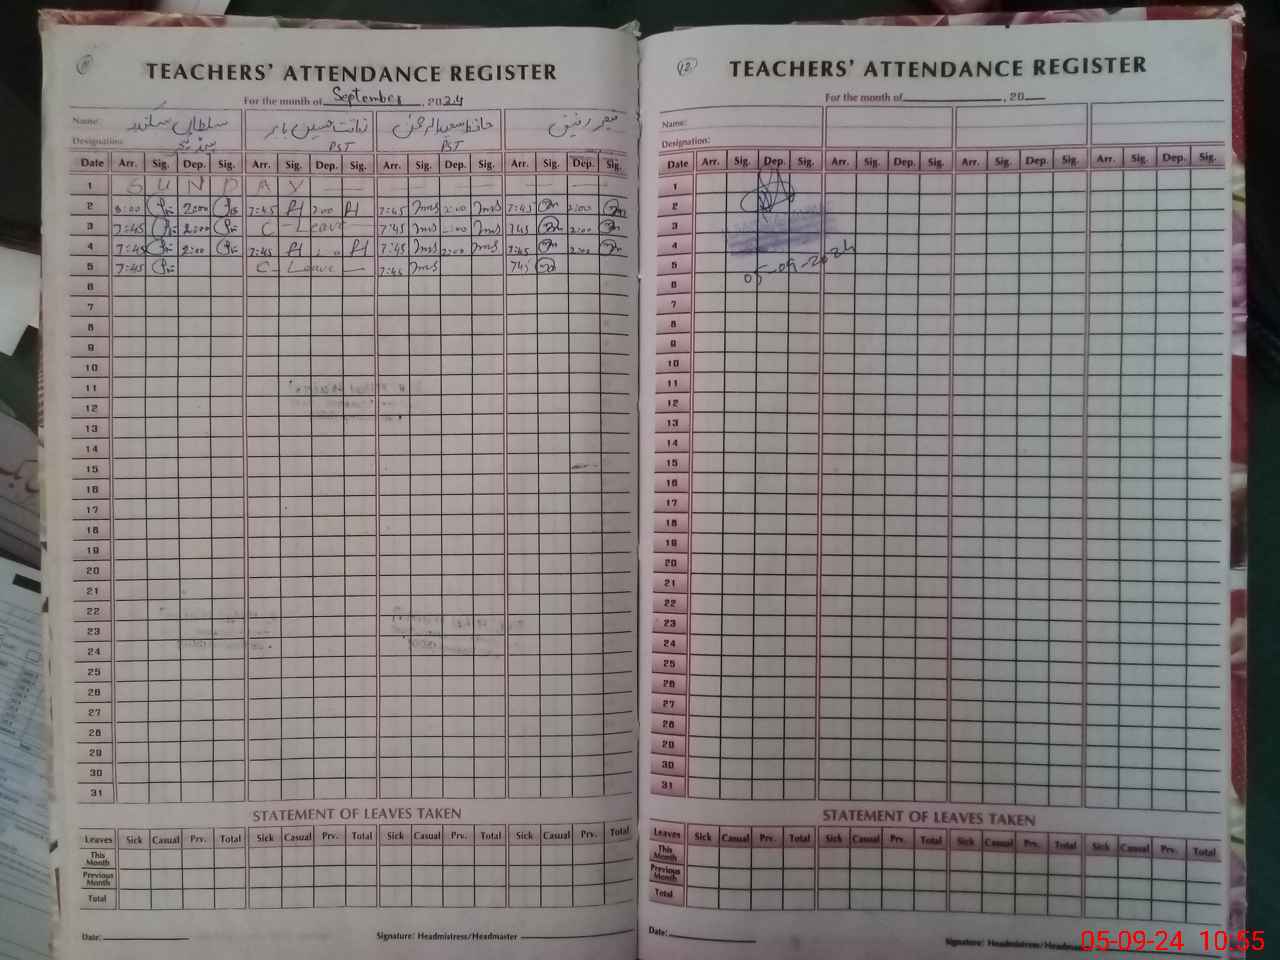 TEACHERS' ATTENDANCE REGISTER
For the month of September, 2024
Name:
Designation:
PST PST
Date Arr. Sig. Dep. Sig. Arr. Sig. Dep. Sig. Arr. Sig. Dep. Sig. Arr. Sig. Dep. Sig.
1 S U N D A Y
2 8:00 2:00 7:45 2:00 7:45 2:00 7:45 2:00
3 7:45 2:00 C - Leave 7:45 2:00 7:45 2:00
4 7:45 2:00 7:45 7:45 2:00 7:45 2:00
5 7:45 C - Leave 7:45 7:45
6
7
8
9
10
11
12
13
14
15
16
17
18
19
20
21
22
23
24
25
26
27
28
29
30
31
STATEMENT OF LEAVES TAKEN
Leaves Sick Casual Prv. Total Sick Casual Prv. Total Sick Casual Prv. Total Sick Casual Prv. Total
This Month
Previous Month
Total
Date:
Signature: Headmistress/Headmaster
12
TEACHERS' ATTENDANCE REGISTER
For the month of , 20
Name:
Designation:
Date Arr. Sig. Dep. Sig. Arr. Sig. Dep. Sig. Arr. Sig. Dep. Sig. Arr. Sig. Dep. Sig.
1
2
3
4
5
05-09-2024
6
7
8
9
10
11
12
13
14
15
16
17
18
19
20
21
22
23
24
25
26
27
28
29
30
31
STATEMENT OF LEAVES TAKEN
Leaves Sick Casual Prv. Total Sick Casual Prv. Total Sick Casual Prv. Total Sick Casual Prv. Total
This Month
Previous Month
Total
Date:
Signature: Headmistress/Headmas
05-09-24 10:55